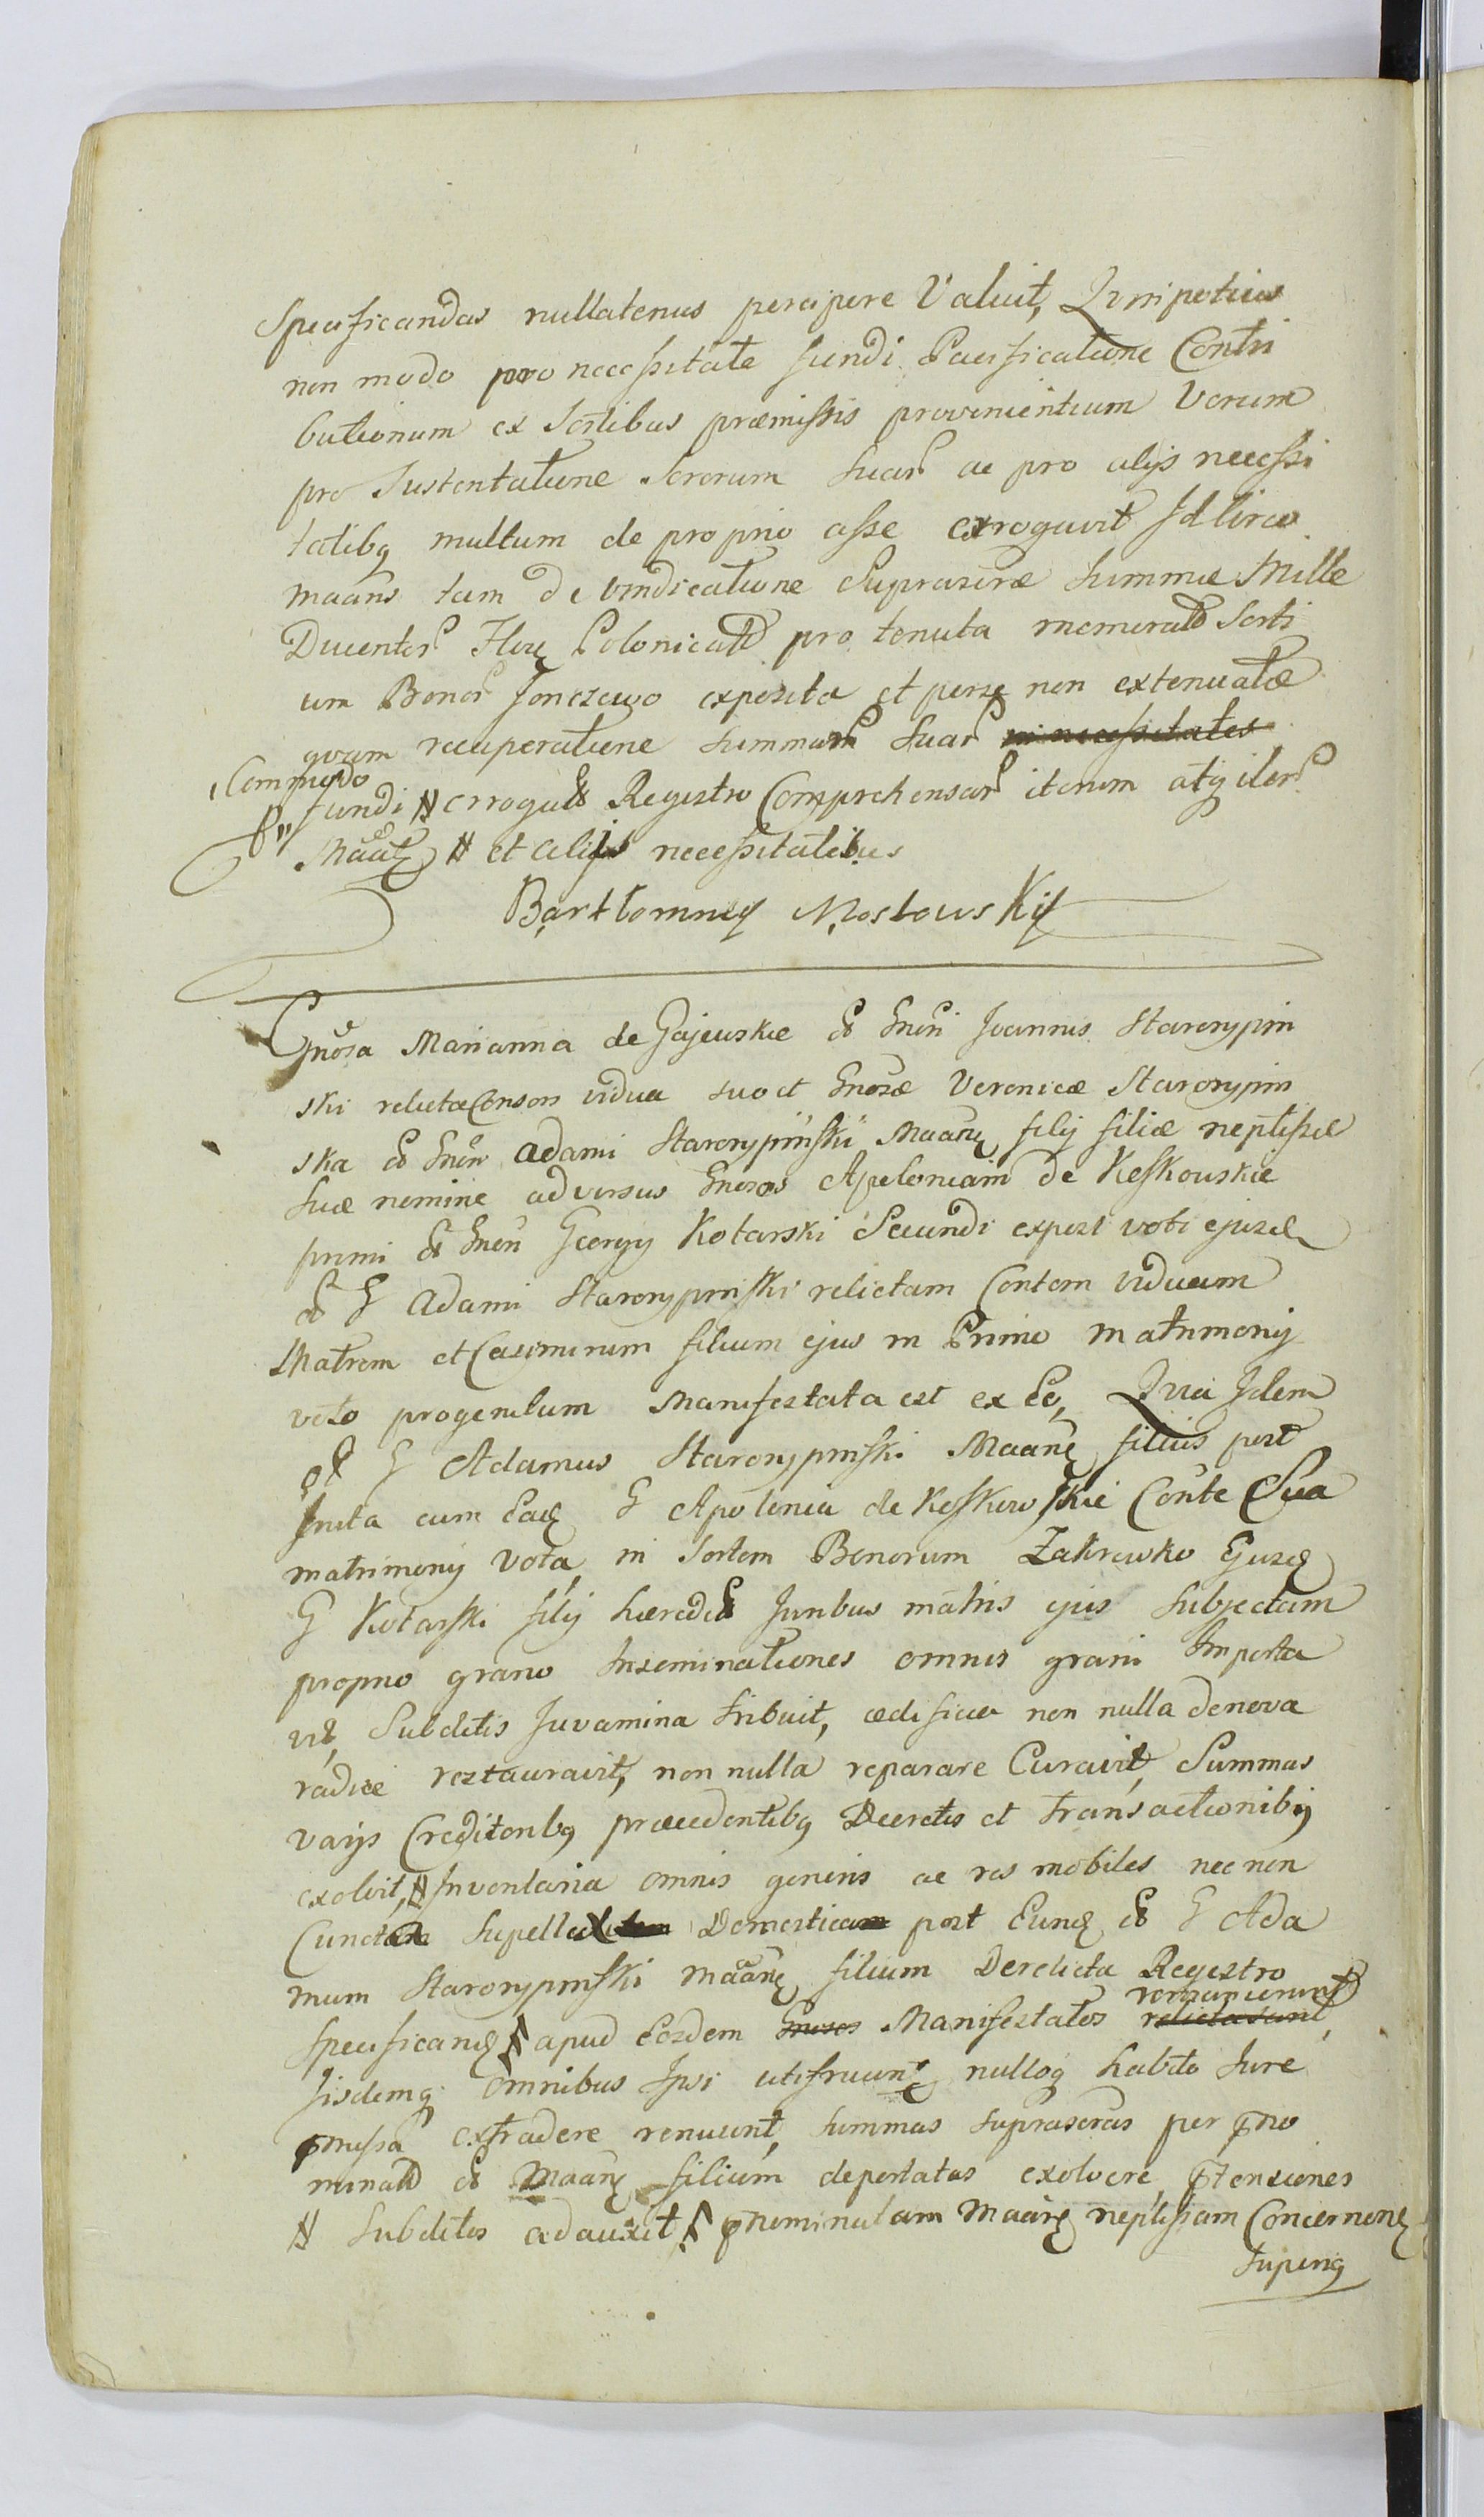 Specificandas nullatenus percipere Valuit, Quinpotius
non modo pro necessitate fundi Pacificatione Contri
butionum ex Sortibus præmissis provenientium Verum
pro Sustentatione Sororum Suar ac pro alijs necessi
tatibq multum de proprio asse erogavit Idcirco
Maans tam de vindicatione Suprascræ Summæ Mille
Ducentor Flor Polonicalt pro tenuta memorat Sorti
um Bonor Jonczewo exposita et persq non extenuatæ
quam recuperatione Summarm Suar in necessitates
Commodo
fundi # erogat Regestro Comprehensar iterum atq iter
Maatq # et alijs necessitatibus
Bartłomiey Mostowskij
Gnosa Marianna de Gajewskie Gnosi Joannis Starorypin
ski relicta Consors vidua suo et Gnosæ Veronicæ Starorypin
ska Gnosi Adami Starorypinski Maanq filij filiæ neptissæ
Suæ nomine adversus Gnosos Apoloniam de Keskowskie
primi Gnosi Georgij Kotarski Secundi expost voti ejusd
G Adami Starorypinski relictam Contem viduam
Matrem et Casimirum filium ejus in Primo matrimonij
voto progenitum Manifestata est ex Eo, Quia Idem
G Adamus Starorypinski Maanq filius post
Inita cum Eadq G Apolonia de Keskowskie Conte Sua
matrimonij Vota in Sortem Bonorum Zakrewko Ejusq
G Kotarski filij hæredit Juribus matris ejus Subjectam
proprio grano Inseminationes omnis grani Importa
vit, Subditis Juvamina tribuit, ædificia non nulla denova
radice restauravit, non nulla reparare Curavit, Summas
varijs Creditoribq præcedentibq Decretis et Transactionibq
exolvit, # Inventaria omnis generis ac res mobiles nec non
Cuncta Supellex Domestica post Eundq G Ada
mum Starorypinski Maanq filium Derelicta Regestro
remanserunt
Specificandq apud Eosdem Gnosos Manifestatos relicta sunt,
Iisdemq omnibus Ipsi utifruuntq nulloq habito Jure
pmissa extradere renuunt, Summas Suprascras per pno
minatt Maanq filium deportatas exolvere, ptensiones
# Subditos adauxit pnominatam Maanq neptissam Concernenq
Superinq